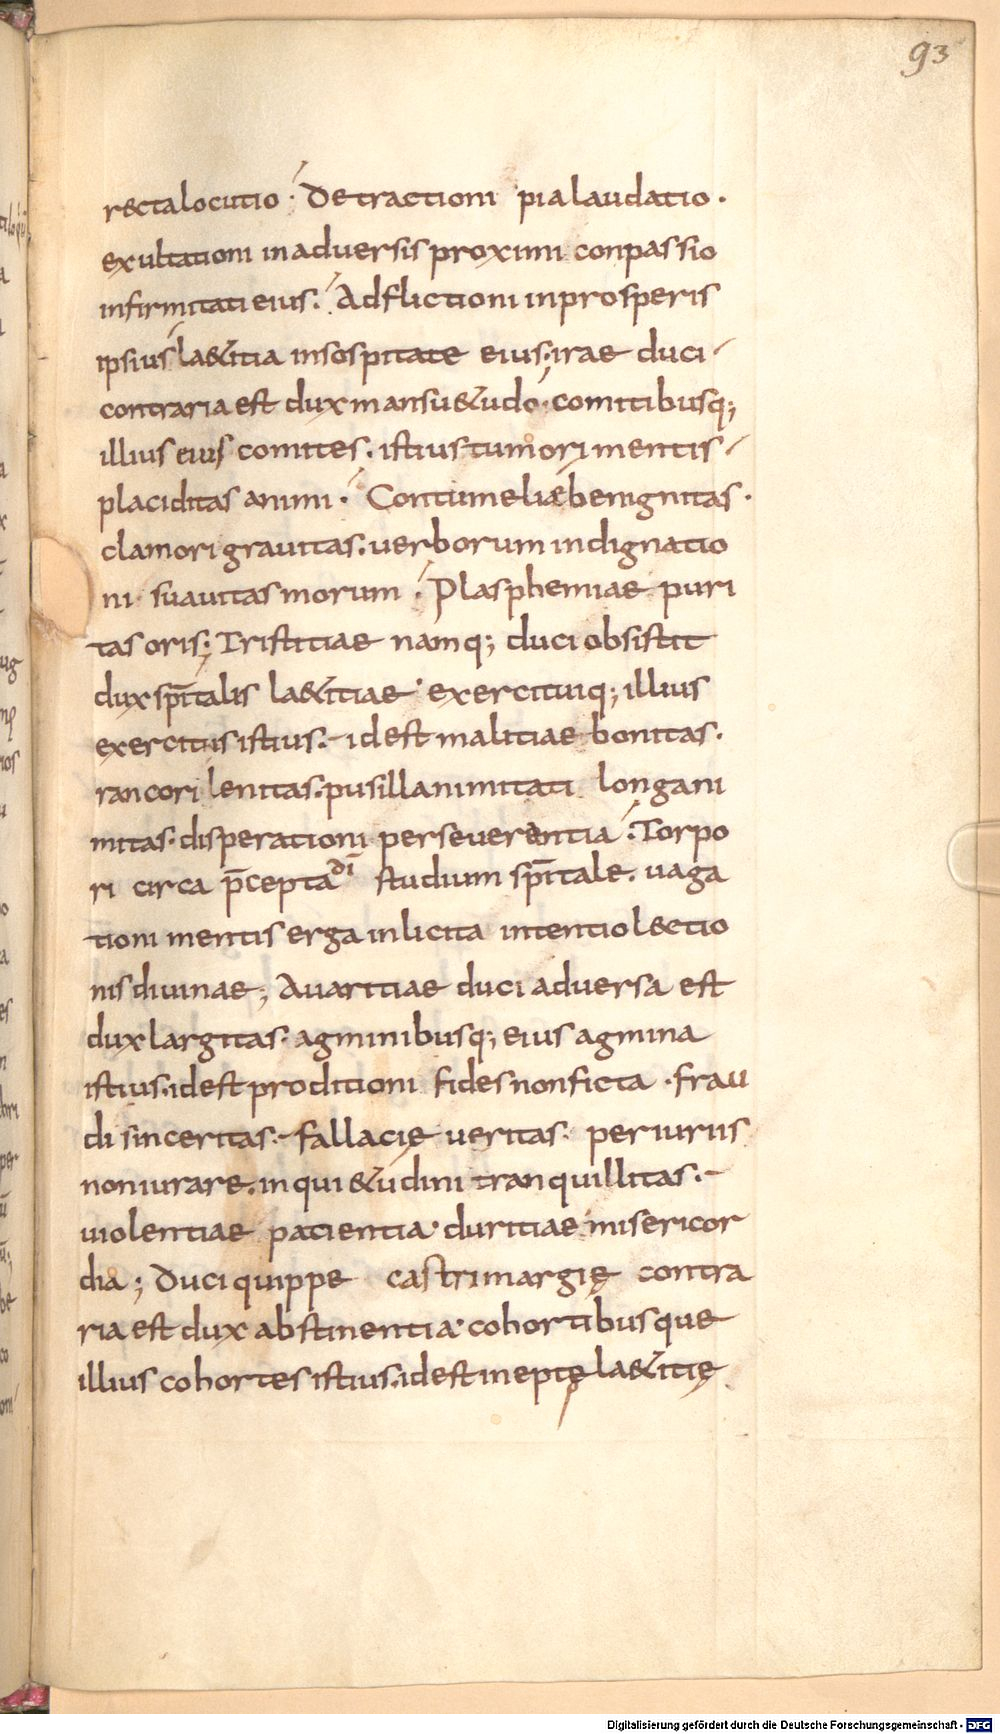 93
r&ctalocutio . Detractioni pia laudatio .
exultationi in aduersis proximi conpassio
infirmitati eius . Adflictioni in prosperis
ipsius la&itia insospitate eius . irae duci
contraria est dux mansu&udo . comitibusq;
illius eius comites . istius tumori mentis
placiditas animi . Contumeliæ benignitas .
clamori grauitas . uerborum indignatio
ni suauitas morum . Plasphemiae puri
tas oris ; Tristitiae namq; duci obsistit
dux sp̄italis la&itiae exercituiq; illius
exercitus istius . id est malitiae bonitas .
rancori lenitas . pusillanimitati longani
mitas . disperationi perseuerentia . Torpo
ri circa p̄cepta dī studium sp̄itale . uaga
tioni mentis erga inlicita intentio l&ctio
nis diuinae ; Auaritiae duci aduersa est
dux largitas . agminibusq; eius agmina
istius . id est proditioni fides non ficta . frau
di sinceritas . fallacię ueritas . periuriis
non iurare . inqui&udini tranquillitas .
uiolentiae pacientia . duritiae misericor
dia ; Duci quippe castrimargię contra
ria est dux abstinentia . cohortibus que
illius cohortes istius . id est ineptę la&itię
Digitalisierung gefördert durch die Deutsche Forschungsgemeinschaft - DFG